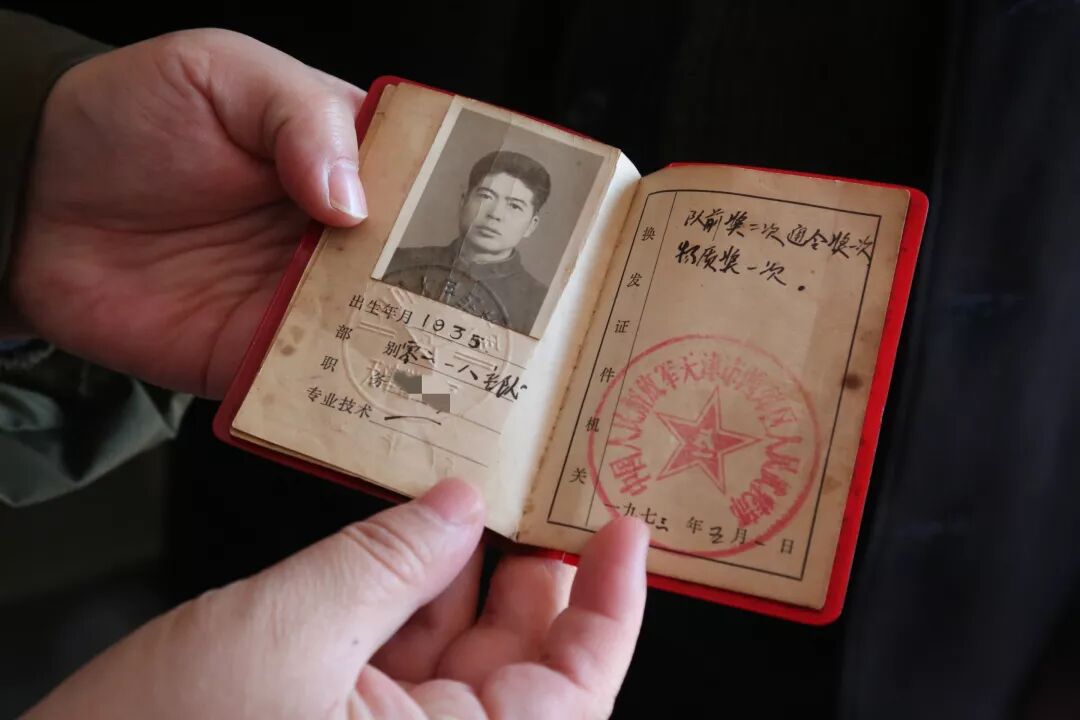 出生年月1935.
部 别零二一八部队
职 务
专业技术
换发证件机关
队前奖二次通令奖一次
物质奖一次.
中国人民解放军天津市
区人民武装部
一九七三年五月一日